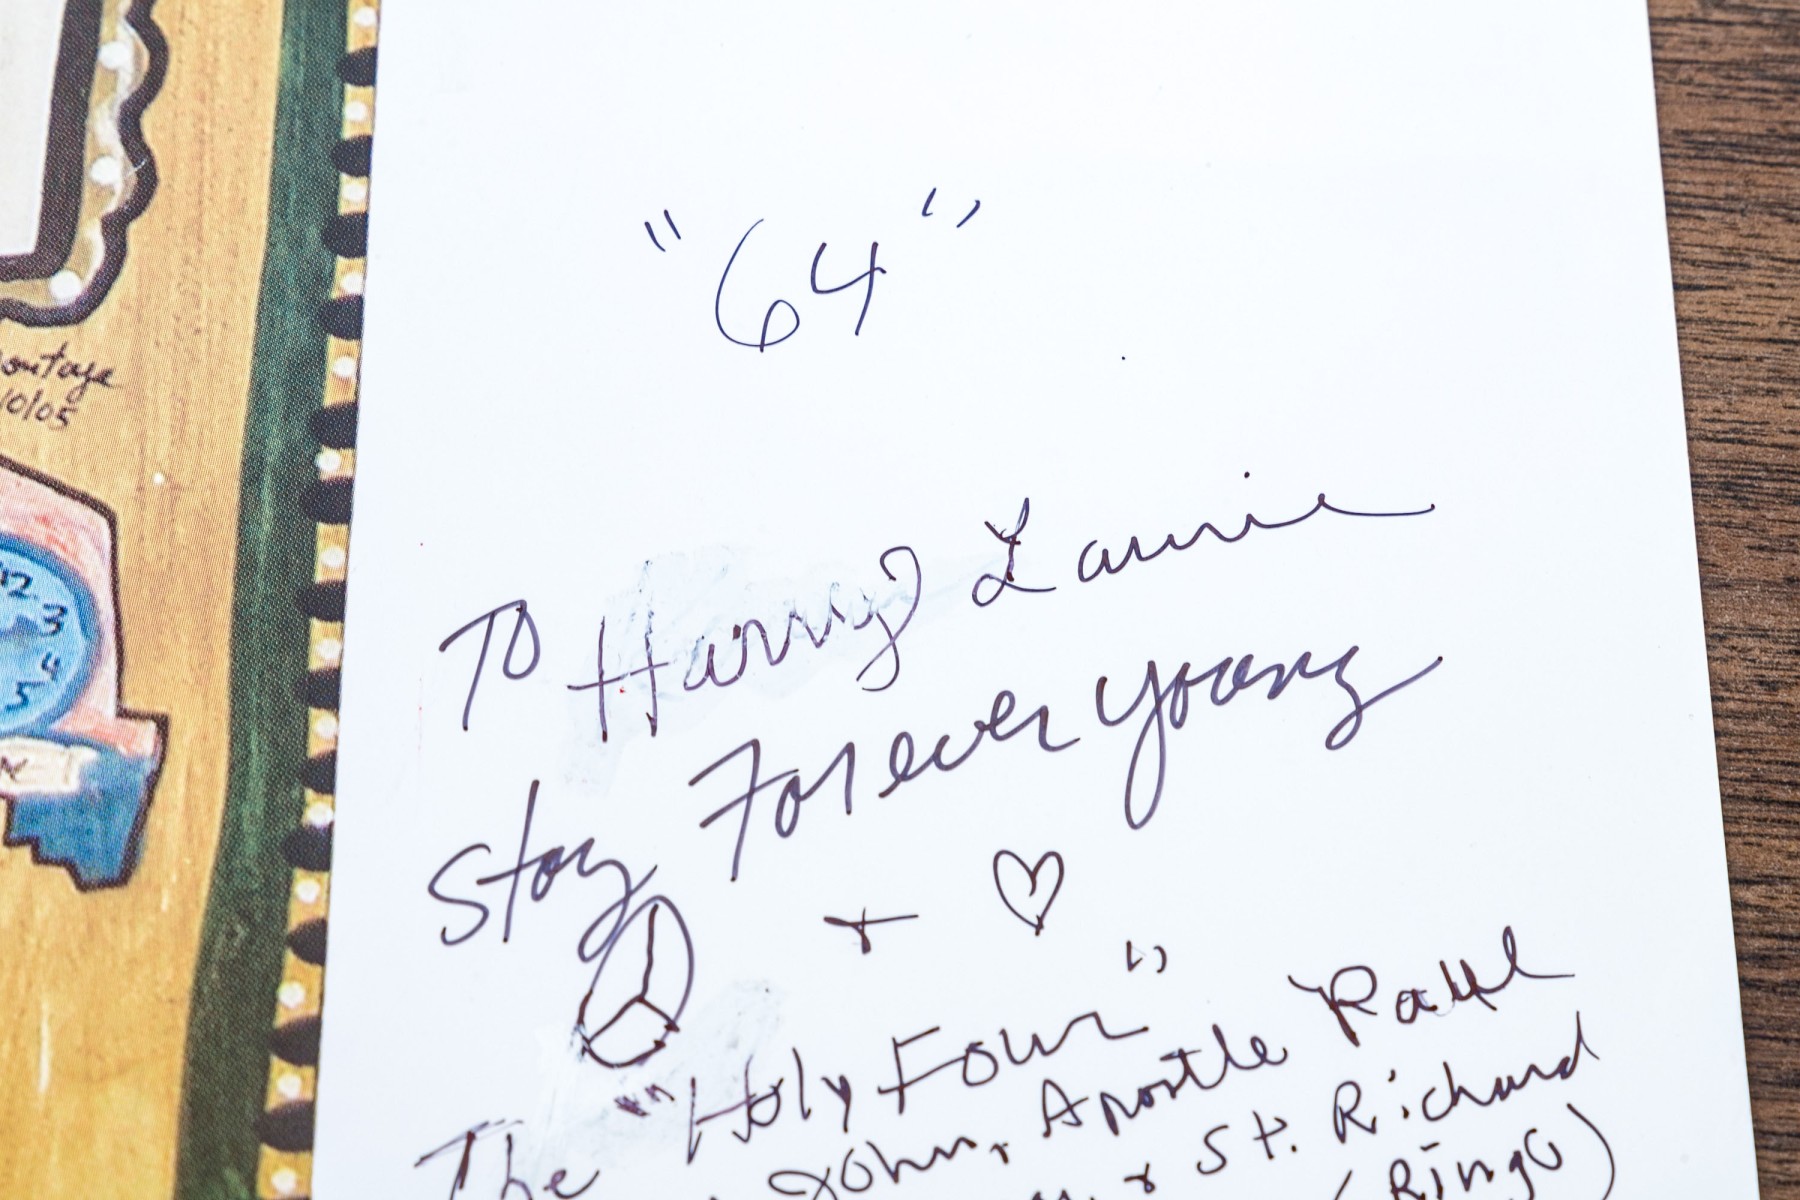 "64"
To Harry & Laurie
Stay Forever Young
+
The "Holy Four"
John, Apostle Paul
& St. Richard
(Ringo)
10/05
12
3
4
5